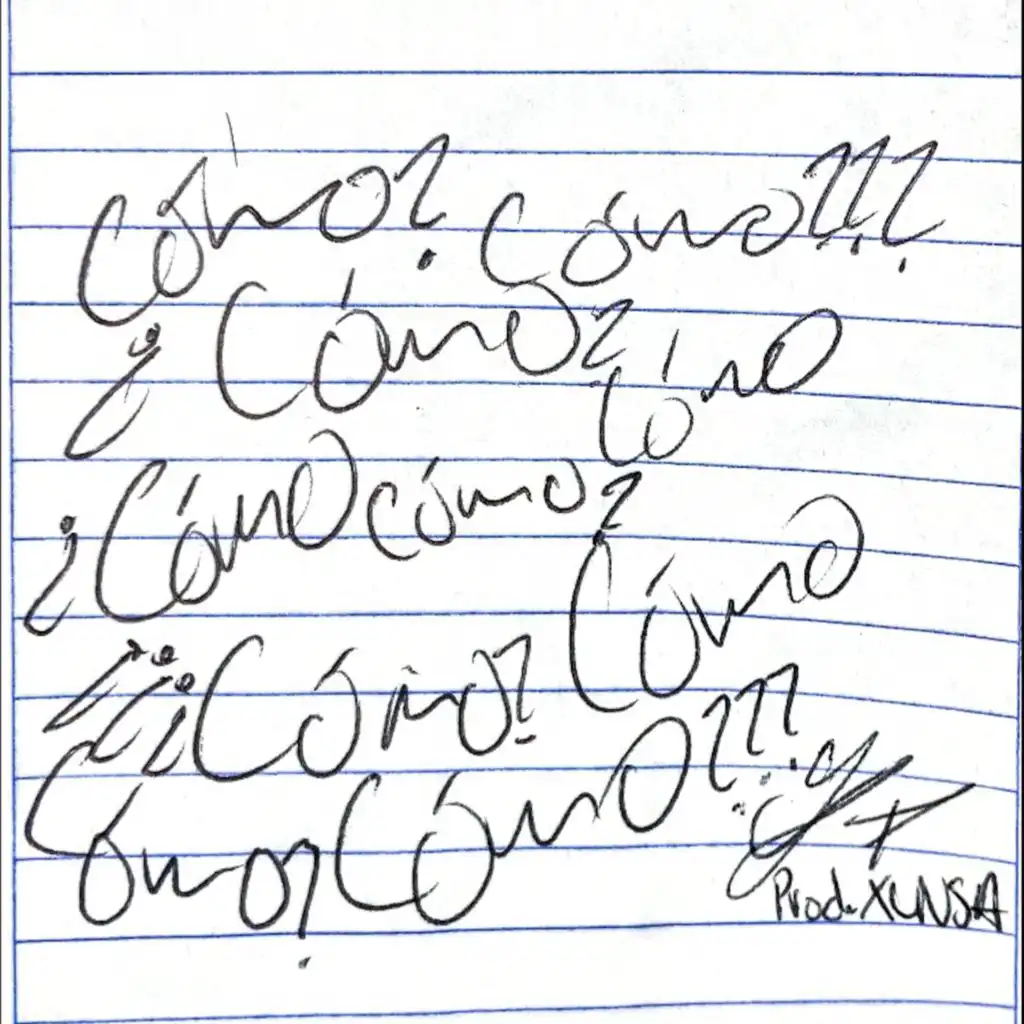 Cómo? Cómo???
¿Cómo?
Cómo
¿Cómo cómo?
Cómo
¿¿¿Cómo?
Cómo? Cómo???
Prod. XUNSA